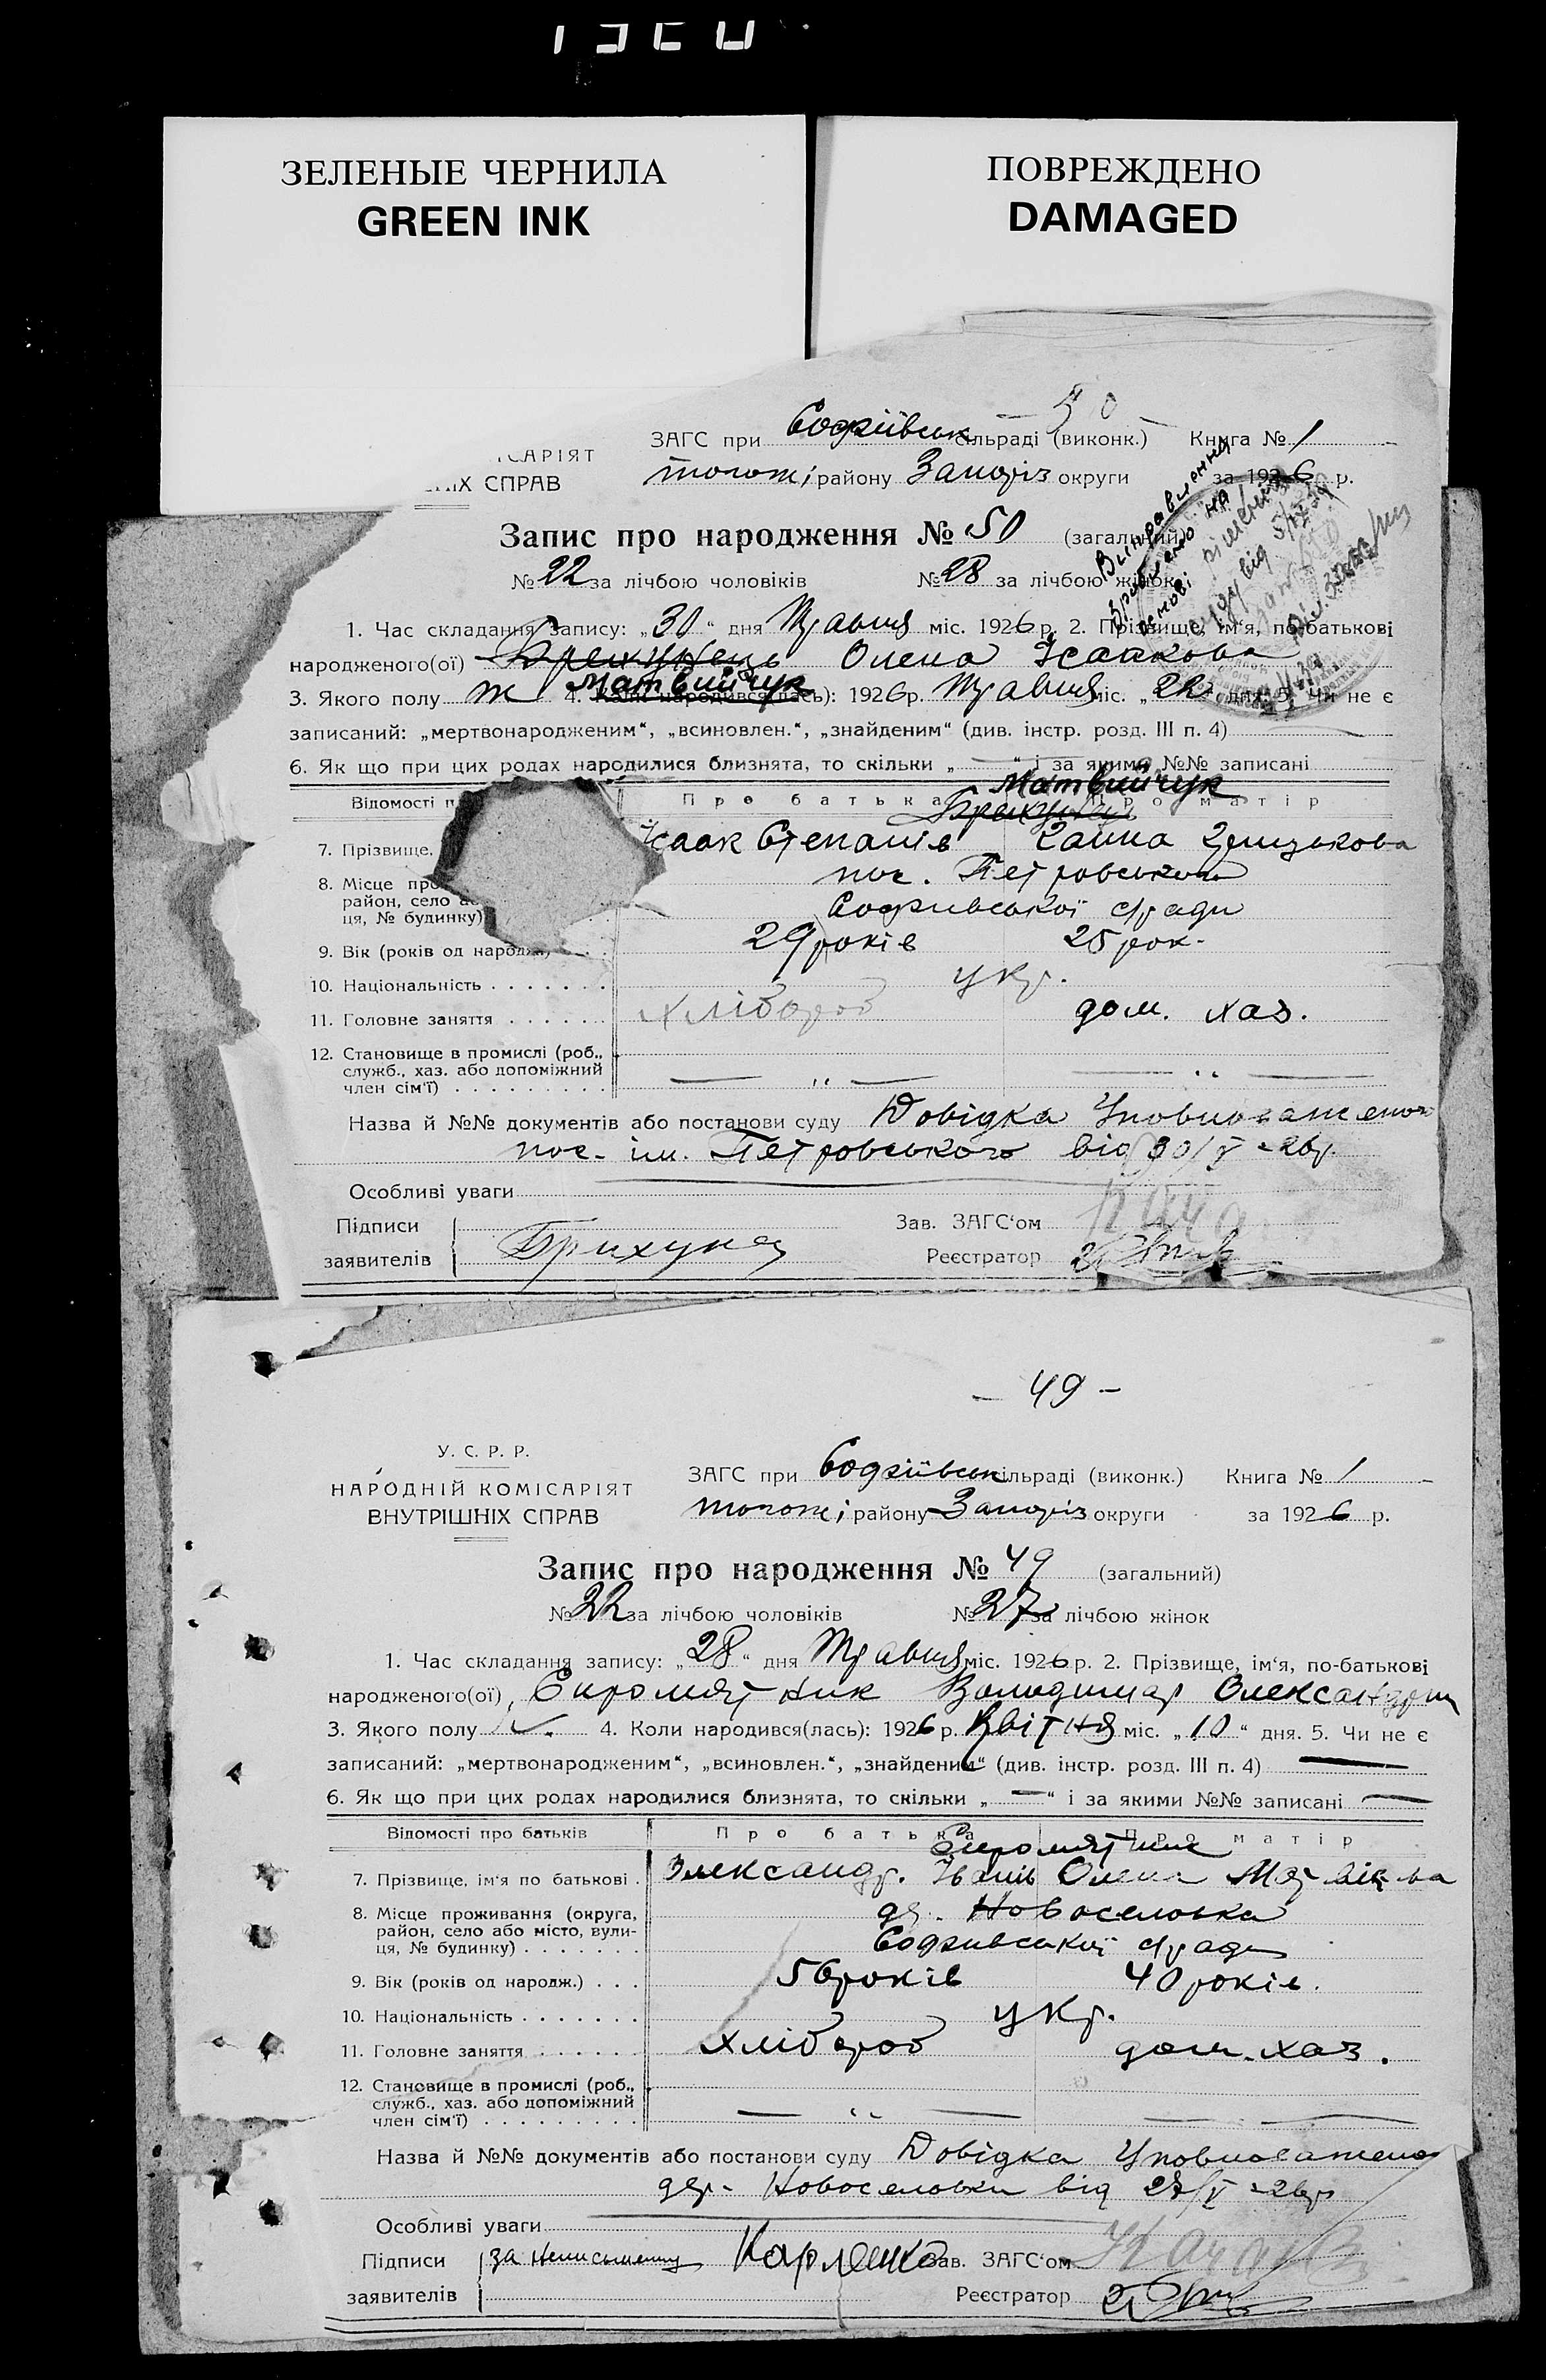 ЗЕЛЕНЫЕ ЧЕРНИЛА
GREEN INK
ПОВРЕЖДЕНО
DAMAGED
— 50 —
ІСАРІЯТ
ІХ СПРАВ
ЗАГС при Софіївськ сільраді (виконк.) Книга № 1
району Запоріз округи за 1926 р.
Виправлення
зроблено на
основі рішення
суду від
Запис про народження № 50 (загальний)
№ 22 за лічбою чоловіків № 28 за лічбою жінок
1. Час складання запису: „30“ дня Травня міс. 1926 р. 2. Прізвище, ім‘я, по-батькові
народженого(ої) Олена Ісаакова
Матвийчук
3. Якого полу ж 4. Коли народився(лась): 1926 р. Травня міс. „22“ дня. 5. Чи не є
записаний: „мертвонародженим“, „всиновлен.“, „знайденим“ (див. інстр. розд. III п. 4)
6. Як що при цих родах народилися близнята, то скільки „—“ і за якими №№ записані
Матвийчук
Відомості п Про батька Про матір
7. Прізвище, Ісаак Степанів Ганна
8. Місце про пос. Петровського
район, село а
ця, № будинку) Софиівської с/ради
9. Вік (років од народж.) 29 років 25 рок-
10. Національність укр.
11. Головне заняття хлібороб дом. хаз.
12. Становище в промислі (роб.,
служб., хаз. або допоміжний
член сім‘ї) — „ — — „ —
Назва й №№ документів або постанови суду Довідка Уповноваженого
пос. ім. Петровського від 30/V-26р.
Особливі уваги
Підписи Зав. ЗАГС‘ом
заявителів Брихунец Реєстратор
— 49 —
У. С. Р. Р.
НАРОДНІЙ КОМІСАРІЯТ
ВНУТРІШНІХ СПРАВ
ЗАГС при Софіївськ сільраді (виконк.) Книга № 1
району Запоріз округи за 1926 р.
Запис про народження № 49 (загальний)
№ 22 за лічбою чоловіків № 27 за лічбою жінок
1. Час складання запису: „28“ дня Травня міс. 1926 р. 2. Прізвище, ім‘я, по-батькові
народженого(ої) Сиромятник Володимир Олександрів
3. Якого полу 4. Коли народився(лась): 1926 р. Квітня міс. „10“ дня. 5. Чи не є
записаний: „мертвонародженим“, „всиновлен.“, „знайденим“ (див. інстр. розд. III п. 4) —
6. Як що при цих родах народилися близнята, то скільки „—“ і за якими №№ записані —
Відомості про батьків Про батька Про матір
Сиромятник
7. Прізвище, ім‘я по батькові Олександр. Іванів Олена
8. Місце проживання (округа, др. Новоселовка
район, село або місто, вули-
ця, № будинку) Софиівської с/ради
9. Вік (років од народж.) 56 років 40 років.
10. Національність укр.
11. Головне заняття хлібороб дом. хаз.
12. Становище в промислі (роб.,
служб., хаз. або допоміжний
член сім‘ї) — „ — — —
Назва й №№ документів або постанови суду Довідка Уповноваженого
дер. Новоселовки від 27/V-26р
Особливі уваги
Підписи за неписьменну Карпенко Зав. ЗАГС‘ом
заявителів Реєстратор